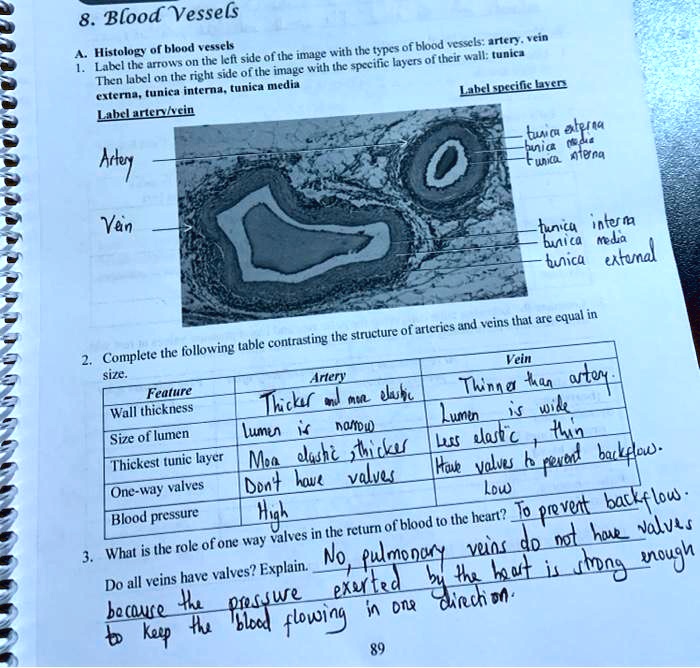 8. Blood Vessels
A. Histology of blood vessels
1. Label the arrows on the left side of the image with the types of blood vessels: artery, vein
Then label on the right side of the image with the specific layers of their wall: tunica
externa, tunica interna, tunica media
Label artery/vein
Label specific layers
Artery
tunica externa
tunica media
tunica interna
Vein
tunica interna
tunica media
tunica external
2. Complete the following table contrasting the structure of arteries and veins that are equal in
size.
Feature Artery Vein
Wall thickness Thicker and more elastic Thinner than artery.
Size of lumen Lumen is narrow Lumen is wide
Thickest tunic layer More elastic, thicker Less elastic, thin
One-way valves Don't have valves Have valves to prevent backflow.
Blood pressure High Low
3. What is the role of one way valves in the return of blood to the heart? To prevent backflow.
Do all veins have valves? Explain. No, pulmonary veins do not have valves
because the pressure exerted by the heart is strong enough
to keep the blood flowing in one direction.
89